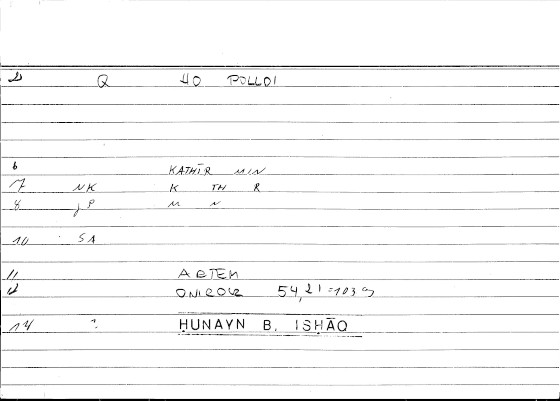 2 Q HO POLLOI
6 KATHĪR MIN
7 NK K TH R
8 JP M N
10 SA
11 ARTEM
12 ONIROCR 54,21 = 103 a
14 : ḤUNAYN B. ISḤĀQ